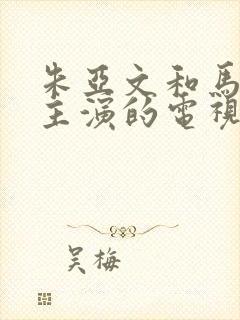 朱亞文和馬
主演的電視
吴梅